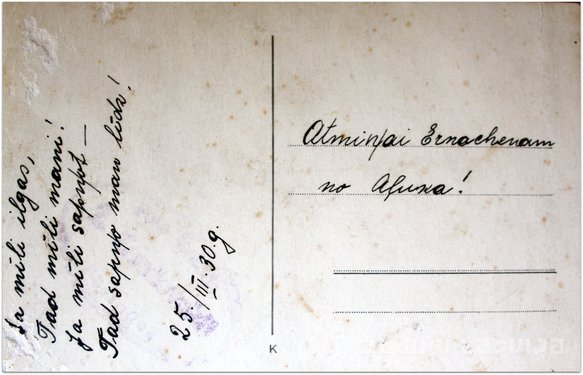 Ja mīli ilgas,
Tad mīli mani!
Ja mīli sapņot —
Tad sapņo man līdz!
25./III.30.g.
Atmiņai Ernochenam
no
K